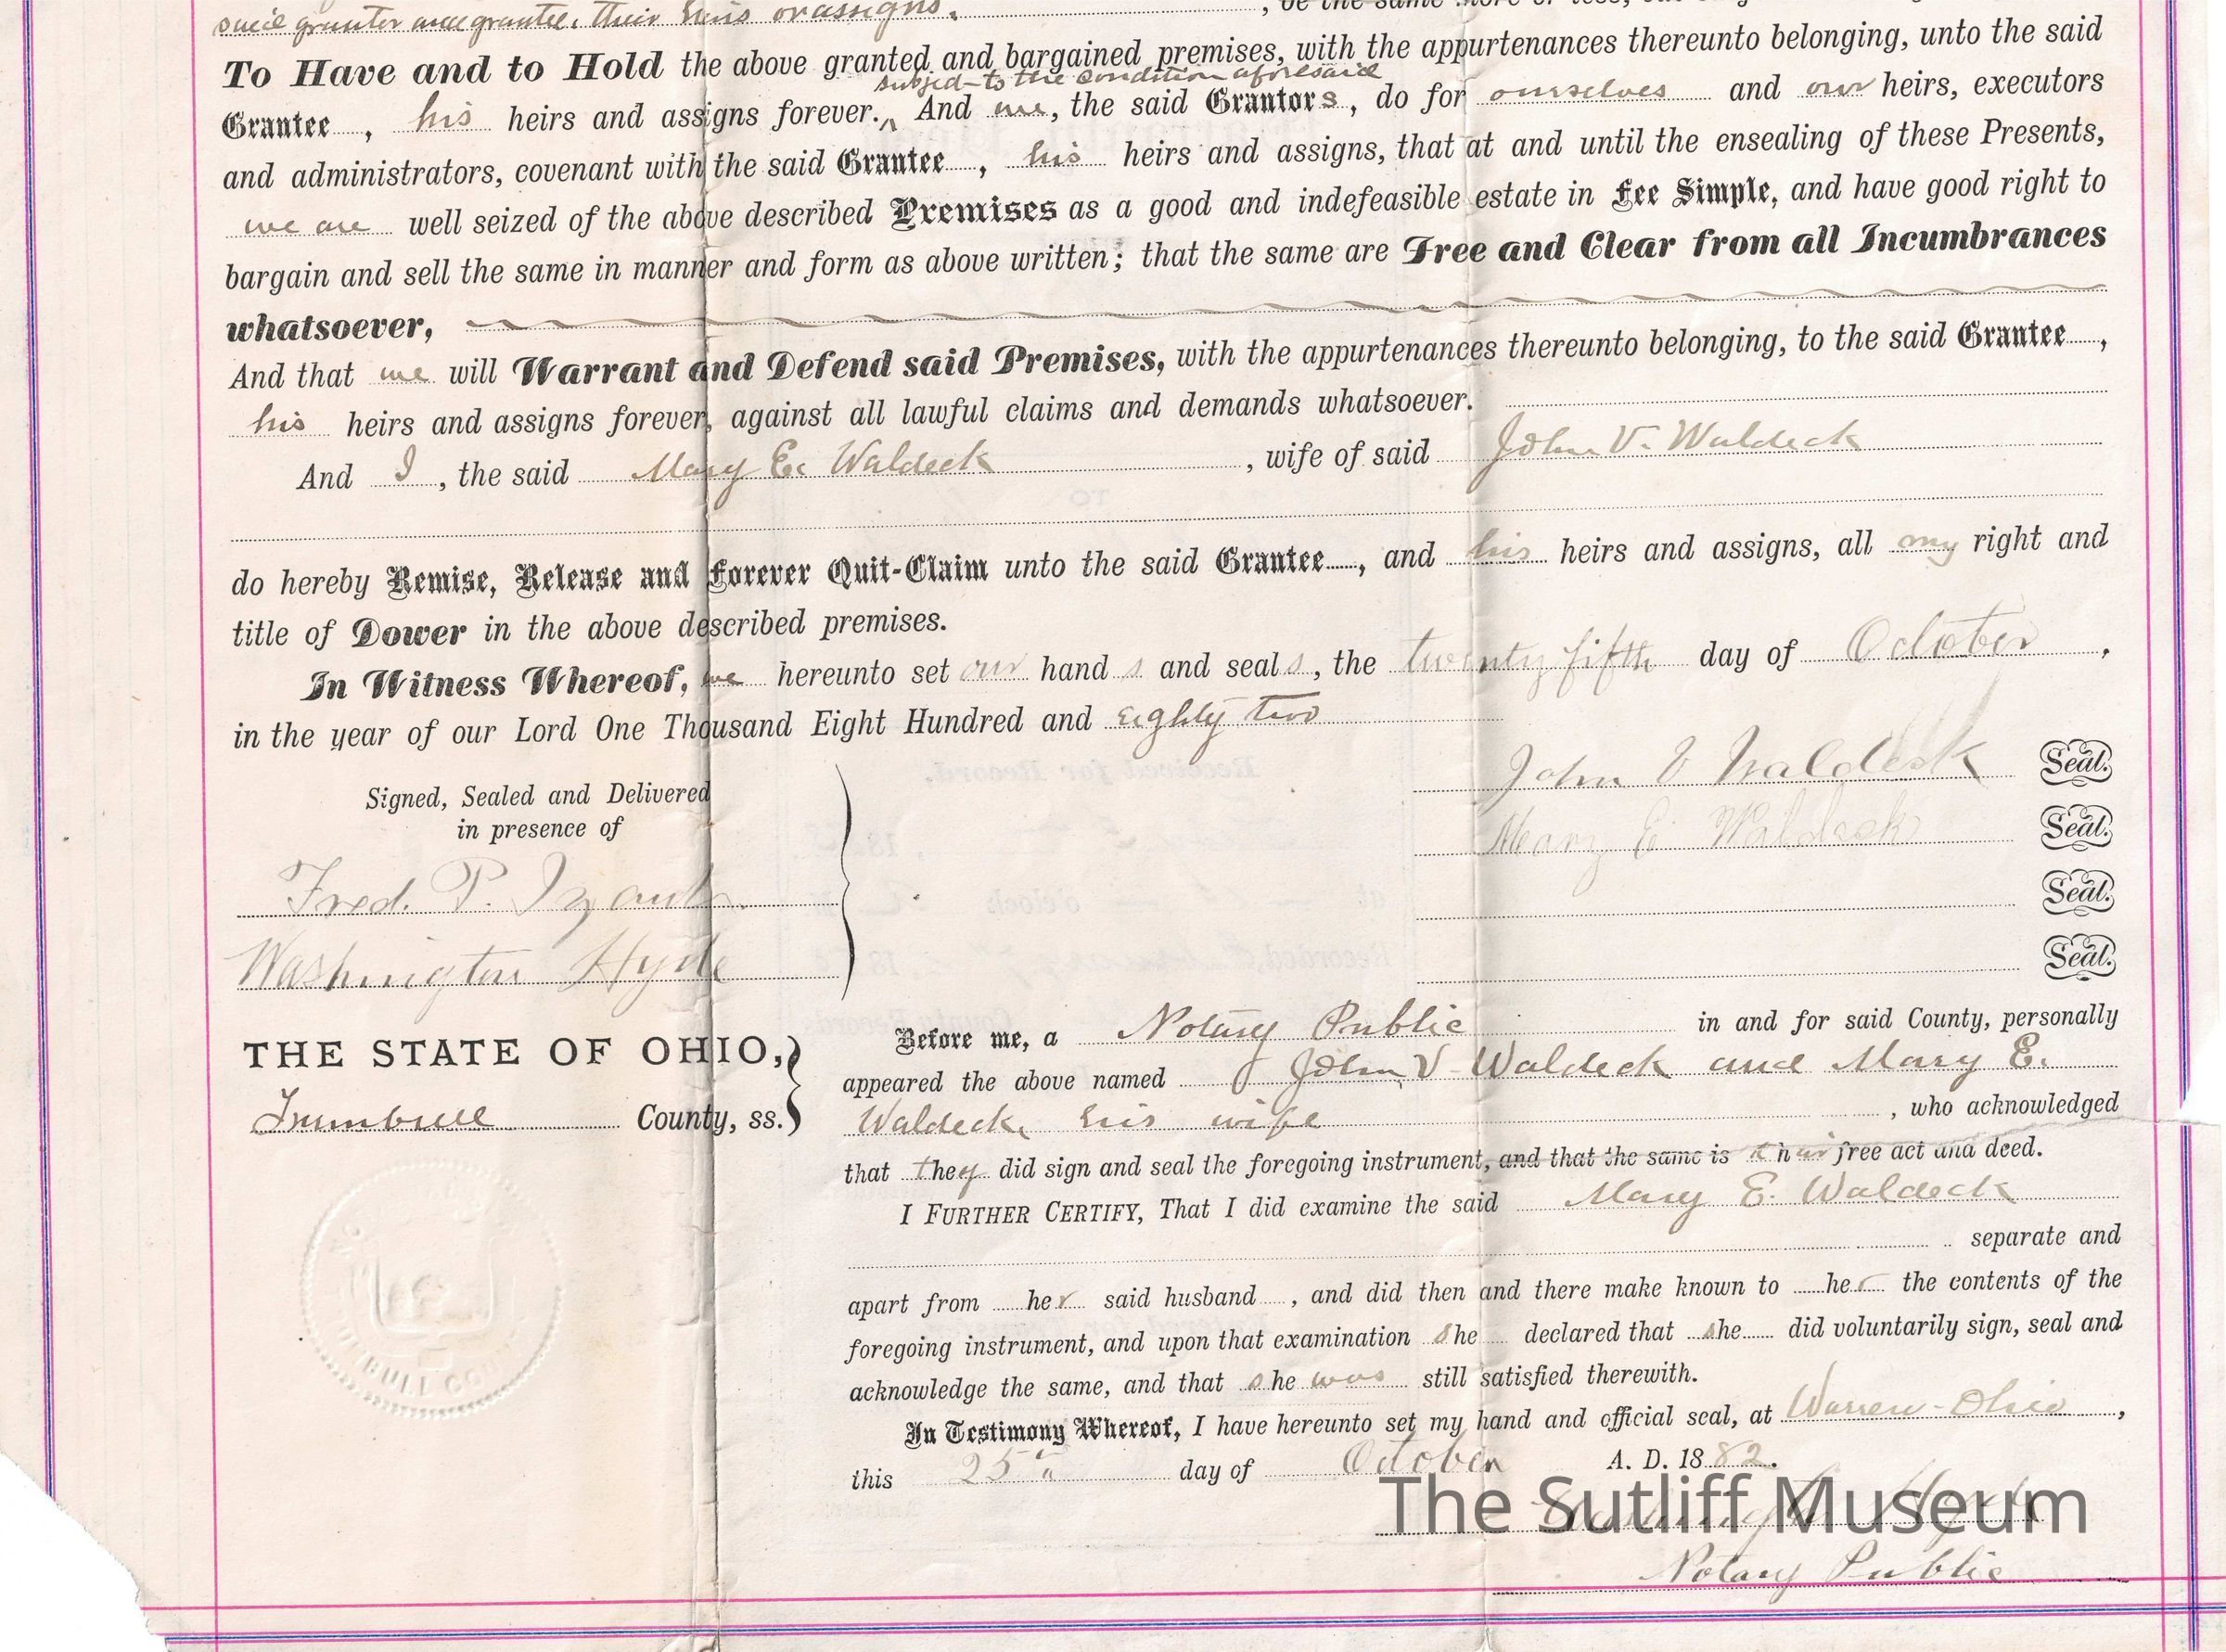 said grantor and grantee, their heirs or assigns.
To Have and to Hold the above granted and bargained premises, with the appurtenances thereunto belonging, unto the said
subject to the condition aforesaid
Grantee, his heirs and assigns forever. And we, the said Grantors, do for ourselves and our heirs, executors
and administrators, covenant with the said Grantee, his heirs and assigns, that at and until the ensealing of these Presents,
we are well seized of the above described Premises as a good and indefeasible estate in Fee Simple, and have good right to
bargain and sell the same in manner and form as above written; that the same are Free and Clear from all Incumbrances
whatsoever,
And that we will Warrant and Defend said Premises, with the appurtenances thereunto belonging, to the said Grantee,
his heirs and assigns forever, against all lawful claims and demands whatsoever.
And I, the said Mary E. Waldeck, wife of said John V. Waldeck
do hereby Remise, Release and Forever Quit-Claim unto the said Grantee, and his heirs and assigns, all my right and
title of Dower in the above described premises.
In Witness Whereof, we hereunto set our hands and seals, the twenty fifth day of October,
in the year of our Lord One Thousand Eight Hundred and eighty two
John V Waldeck Seal.
Signed, Sealed and Delivered
in presence of
Mary E Waldeck Seal.
Fred. P. Seal.
Washington Hyde Seal.
THE STATE OF OHIO,
Trumbull County, ss.
Before me, a Notary Public in and for said County, personally
appeared the above named John V Waldeck and Mary E.
Waldeck, his wife, who acknowledged
that they did sign and seal the foregoing instrument, and that the same is their free act and deed.
I FURTHER CERTIFY, That I did examine the said Mary E. Waldeck
separate and
apart from her said husband, and did then and there make known to her the contents of the
foregoing instrument, and upon that examination she declared that she did voluntarily sign, seal and
acknowledge the same, and that she was still satisfied therewith.
In Testimony Whereof, I have hereunto set my hand and official seal, at Warren Ohio,
this 25th day of October A. D. 1882.
Washington Hyde
The Sutliff Museum
Notary Public